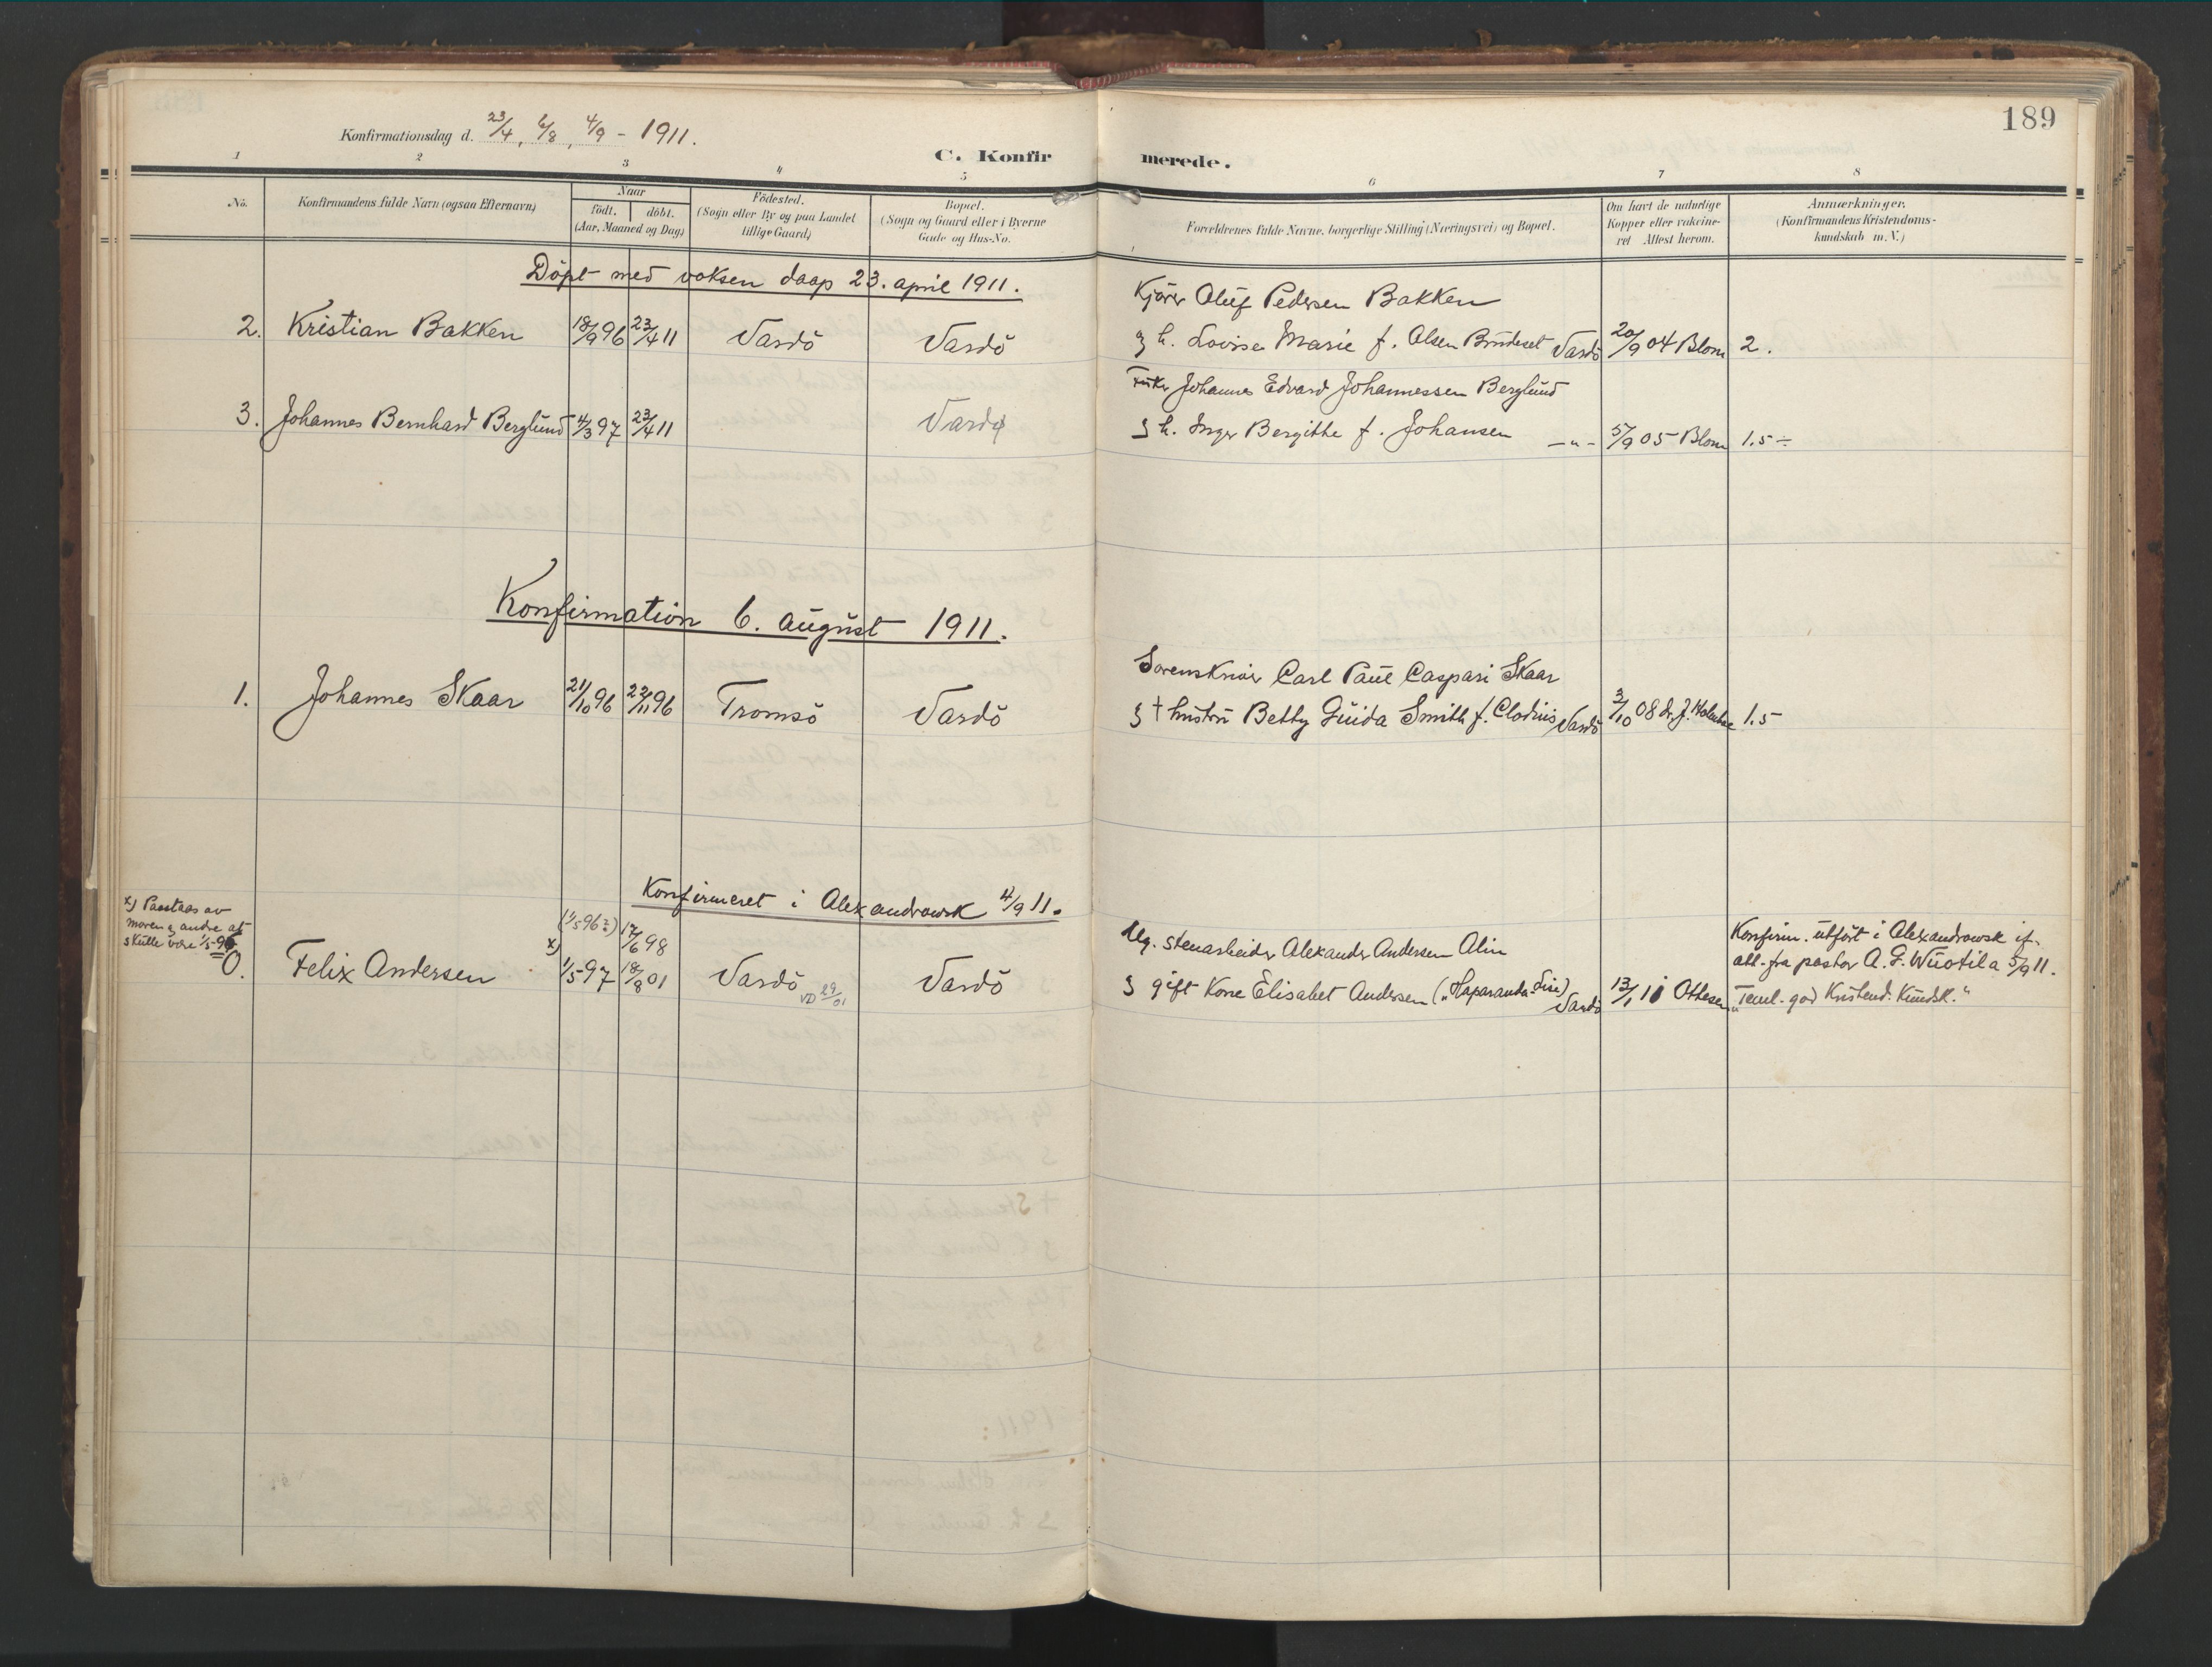 189
Konfirmationsdag d. 23/4, 6/8, 4/9 - 1911.
C. Konfirmerede.
1 2 3 4 5 6 7 8
No.
Konfirmandens fulde Navn (ogsaa Efternavn)
Naar
födt. döbt.
(Aar, Maaned og Dag)
Födested.
(Sogn eller By og paa Landet
tillige Gaard)
Bopæl.
(Sogn og Gaard eller i Byerne
Gade og Hus-No.
Forældrenes fulde Navne, borgerlige Stilling (Næringsvei) og Bopæl.
Om havt de naturlige
Kopper eller vakcine-
ret Attest herom.
Anmærkninger.
(Konfirmandens Kristendoms-
kundskab m.V.)
Döpt med voksen daap 23. april 1911.
Kjörer Oluf Pedersen Bakken
2. Kristian Bakken 18/9 96 23/4 11 Vardö Vardö
g h. Lovise Marie f. Olsen Vardö 20/9 04 Blom 2.
Johannes Edvard Johannessen Berglund
3. Johannes Bernhard Berglund 4/3 97 23/4 11 Vardø
g h. Inger Bergithe f. Johansen -"- 5/9 05 Blom 1.5 ÷
Konfirmation 6. august 1911.
Sorenskriver Carl Paul Caspari Skaar
1. Johannes Skaar 21/10 96 22/11 96 Tromsö Vardö
g † hustru Betty Guida Smith f. Clodius Vardö 3/10 08 dr. J. 1.5
Konfirmeret i Alexandrowsk 4/9 11.
x) Paastaas av
moren g andre at
skulle være 1/5-96
(1/5 96?) 17/6 98
Ug. stenarbeider Alexander Andersen Alin
Konfirm. utfört i Alexandrowsk if.
0. Felix Andersen x) 1/5 97 18/8 01 Vardö VD 29/01 Vardö
g gift Kone Elisabet Andersen („Haparanda-Lise) Vardö 13/1 11 Ottesen
att. fra pastor A. G. Wuotila 5/9 11.
„Teml. god Kristend. Kundsk."